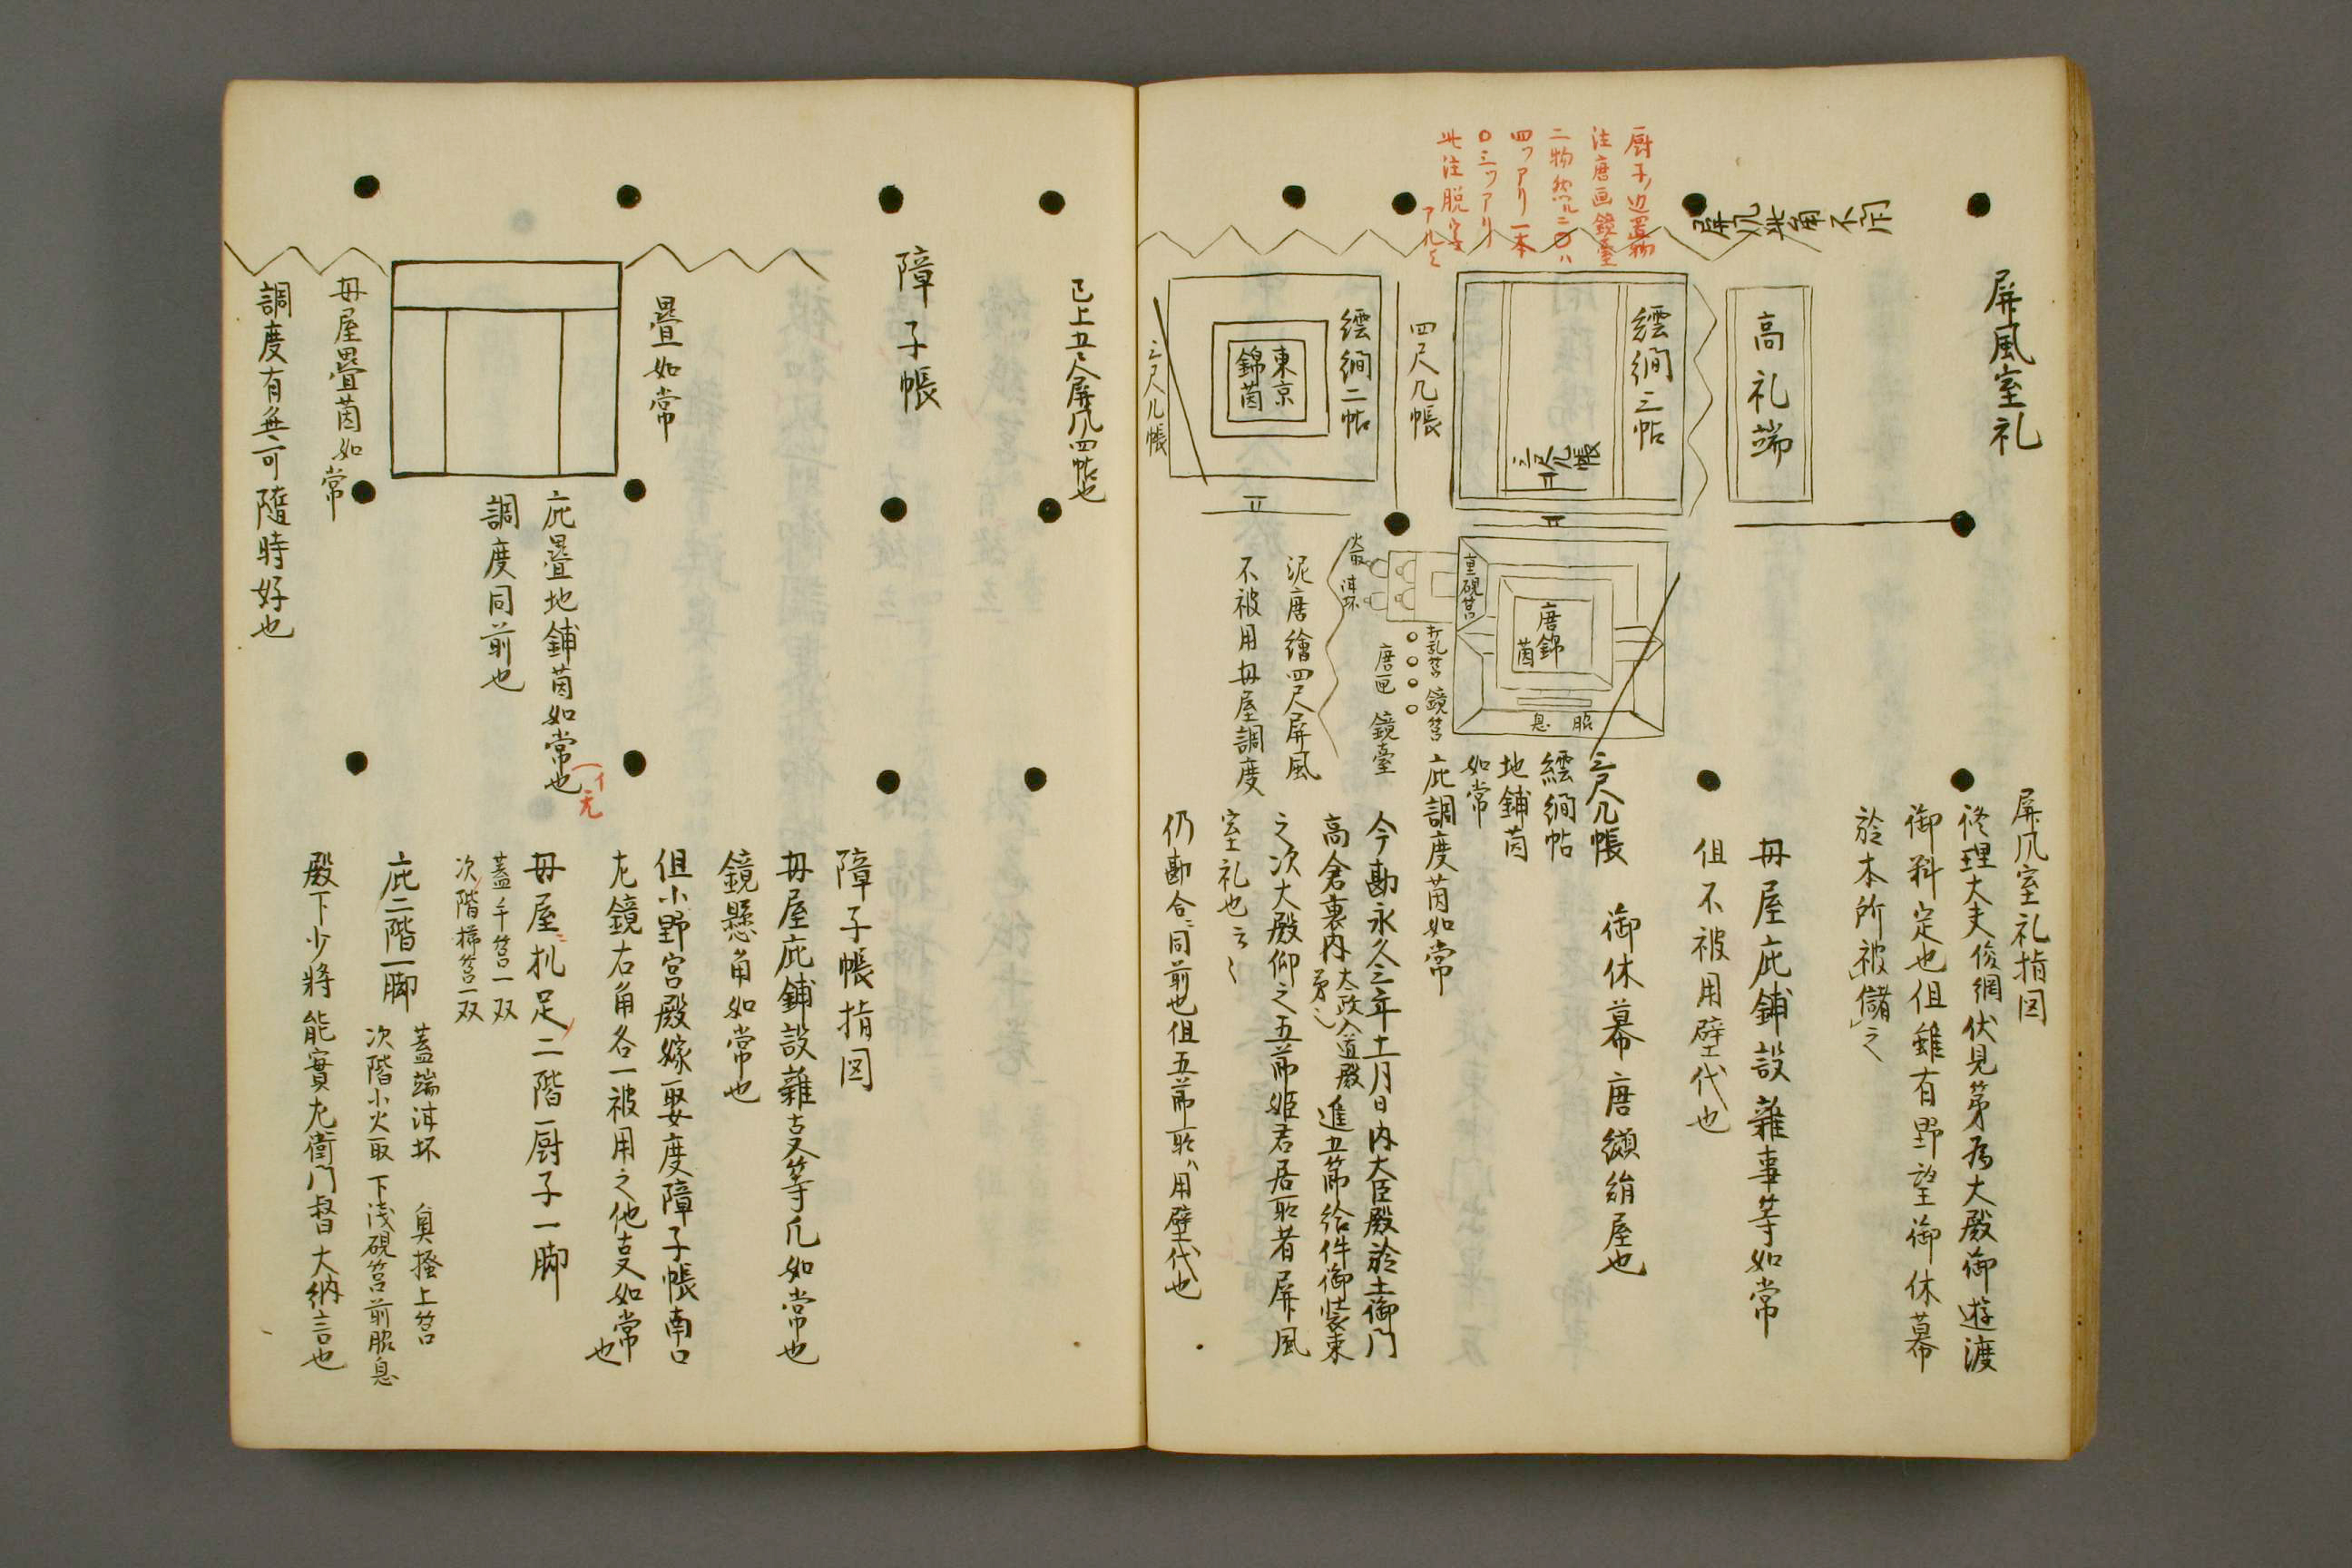 屏風室礼
屏風此角不開
高礼端
繧繝三帖
三尺几帳
四尺几帳
繧繝二帖
東京
錦茵
三尺几帳
厨子ノ辺置物
注唐画鏡臺
四ツアリ一本
〇三ツアリ
此注脱字
アルヘシ
唐錦
茵
脇息
重硯筥
火取
泔坏
打乱筥
鏡筥
唐匣
鏡臺
泥唐繪四尺屏風
不被用母屋調度
三尺几帳
繧繝帖
地鋪茵
如常
庇調度茵如常
屏風室礼指図
修理大夫俊綱伏見第為大殿御遊渡
御料定也但雖有野望御休幕
於本所被儲之
母屋庇鋪設雜事等如常
但不被用壁代也
御休幕唐纐絹屋也
今勘永久三年十一月日内大臣殿於土御門
高倉裏内大政入道殿第也進五節給件御装束
之次大殿仰之五節姫君居所者屏風
室礼也云々
仍勘合同前也但五節所ハ用壁代也
已上五尺屏風四帖也
障子帳
疊如常
母屋疊茵如常
調度有無可隨時好也
庇疊地鋪茵如常也
イ无
調度同前也
障子帳指図
母屋庇鋪設雜事等凡如常也
鏡懸角如常也
但小野宮殿嫁娶度障子帳南口
左鏡右角各一被用之他事又如常也
母屋机足二階厨子一脚
蓋千筥一双
次階掃筥一双
庇二階一脚
蓋端泔坏　奥掻上筥
次階小火取　下浅硯筥前脇息
殿下少將能實左衛門督大納言也